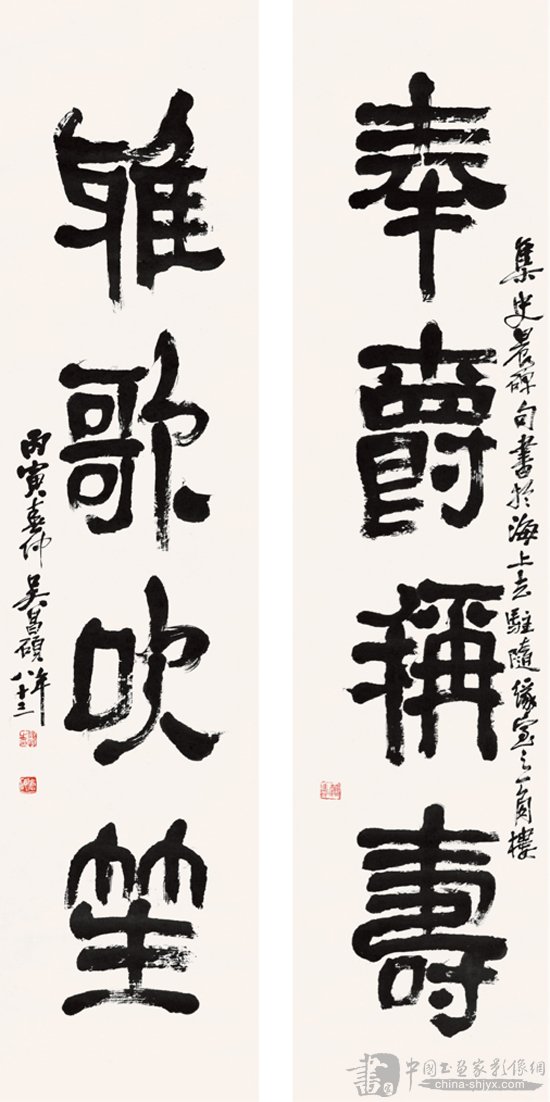 奉爵稱壽
集史晨碑句書於海上去駐隨緣室之一角樓
雅歌吹笙
丙寅春仲吳昌碩年八十三
中国书画家影像網
china-shjyx.com